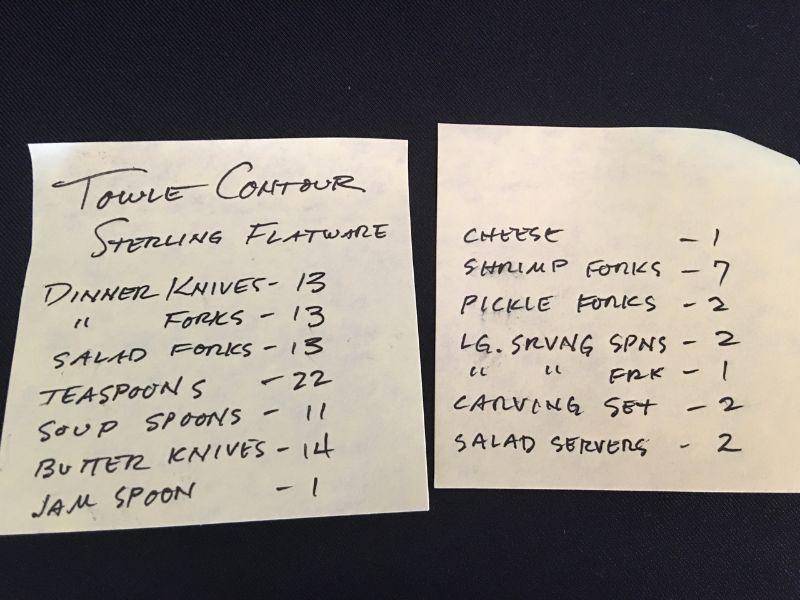 TOWLE CONTOUR
STERLING FLATWARE
DINNER KNIVES - 13
" FORKS - 13
SALAD FORKS - 13
TEASPOONS - 22
SOUP SPOONS - 11
BUTTER KNIVES - 14
JAM SPOON - 1
CHEESE - 1
SHRIMP FORKS - 7
PICKLE FORKS - 2
LG. SRVNG SPNS - 2
" " FRK - 1
CARVING SET - 2
SALAD SERVERS - 2